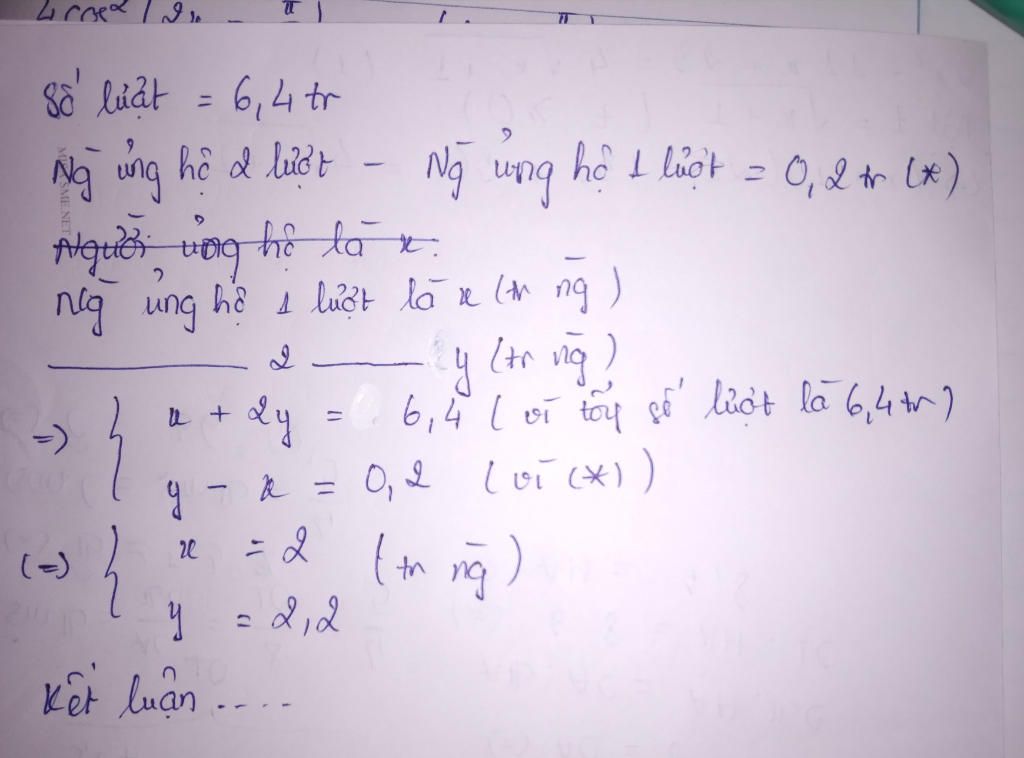 4cos²(2x - π
Số lượt = 6,4 tr
Ng̀ ủng hộ 2 lượt - Ng̀ ủng hộ 1 lượt = 0,2 tr (*)
Người ủng hộ là x.
Ng̀ ủng hộ 1 lượt là x (tr ng̀)
——— 2 ——— y (tr ng̀)
=> { x + 2y = 6,4 (vì tổng số lượt là 6,4 tr)
y - x = 0,2 (vì (*))
(=) { x = 2 (tr ng̀)
y = 2,2
Kết luận ....